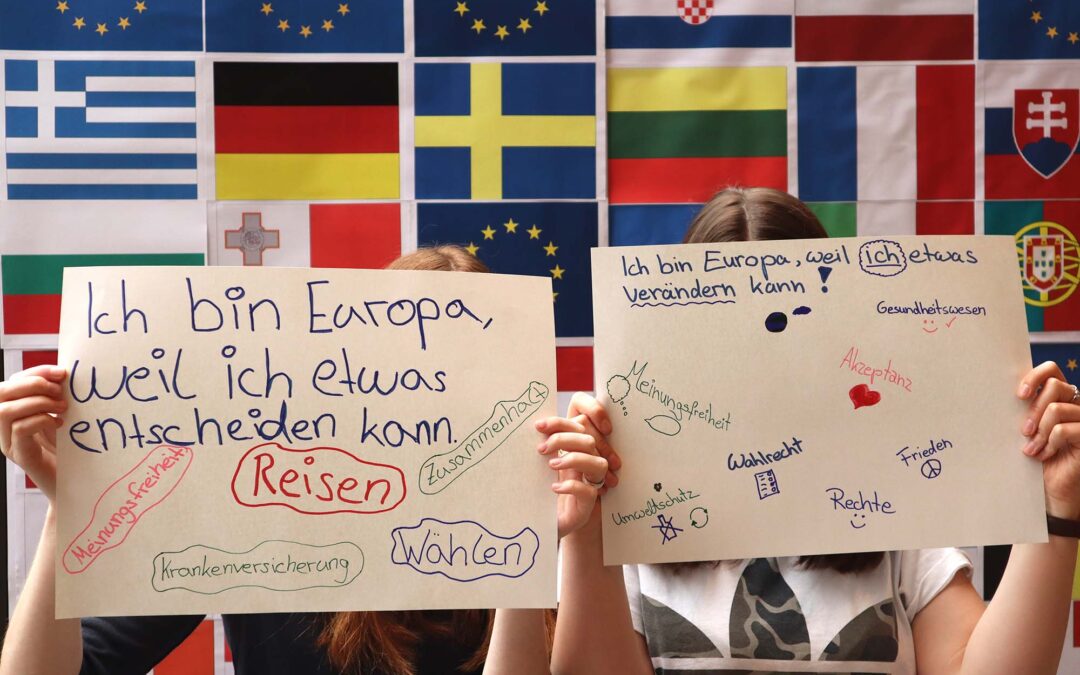 Ich bin Europa,
weil ich etwas
entscheiden kann.
Zusammenhalt
Meinungsfreiheit
Reisen
Wählen
Krankenversicherung
Ich bin Europa, weil ich etwas
verändern kann!
Gesundheitswesen
Akzeptanz
Meinungsfreiheit
Wahlrecht
Frieden
Umweltschutz
Rechte